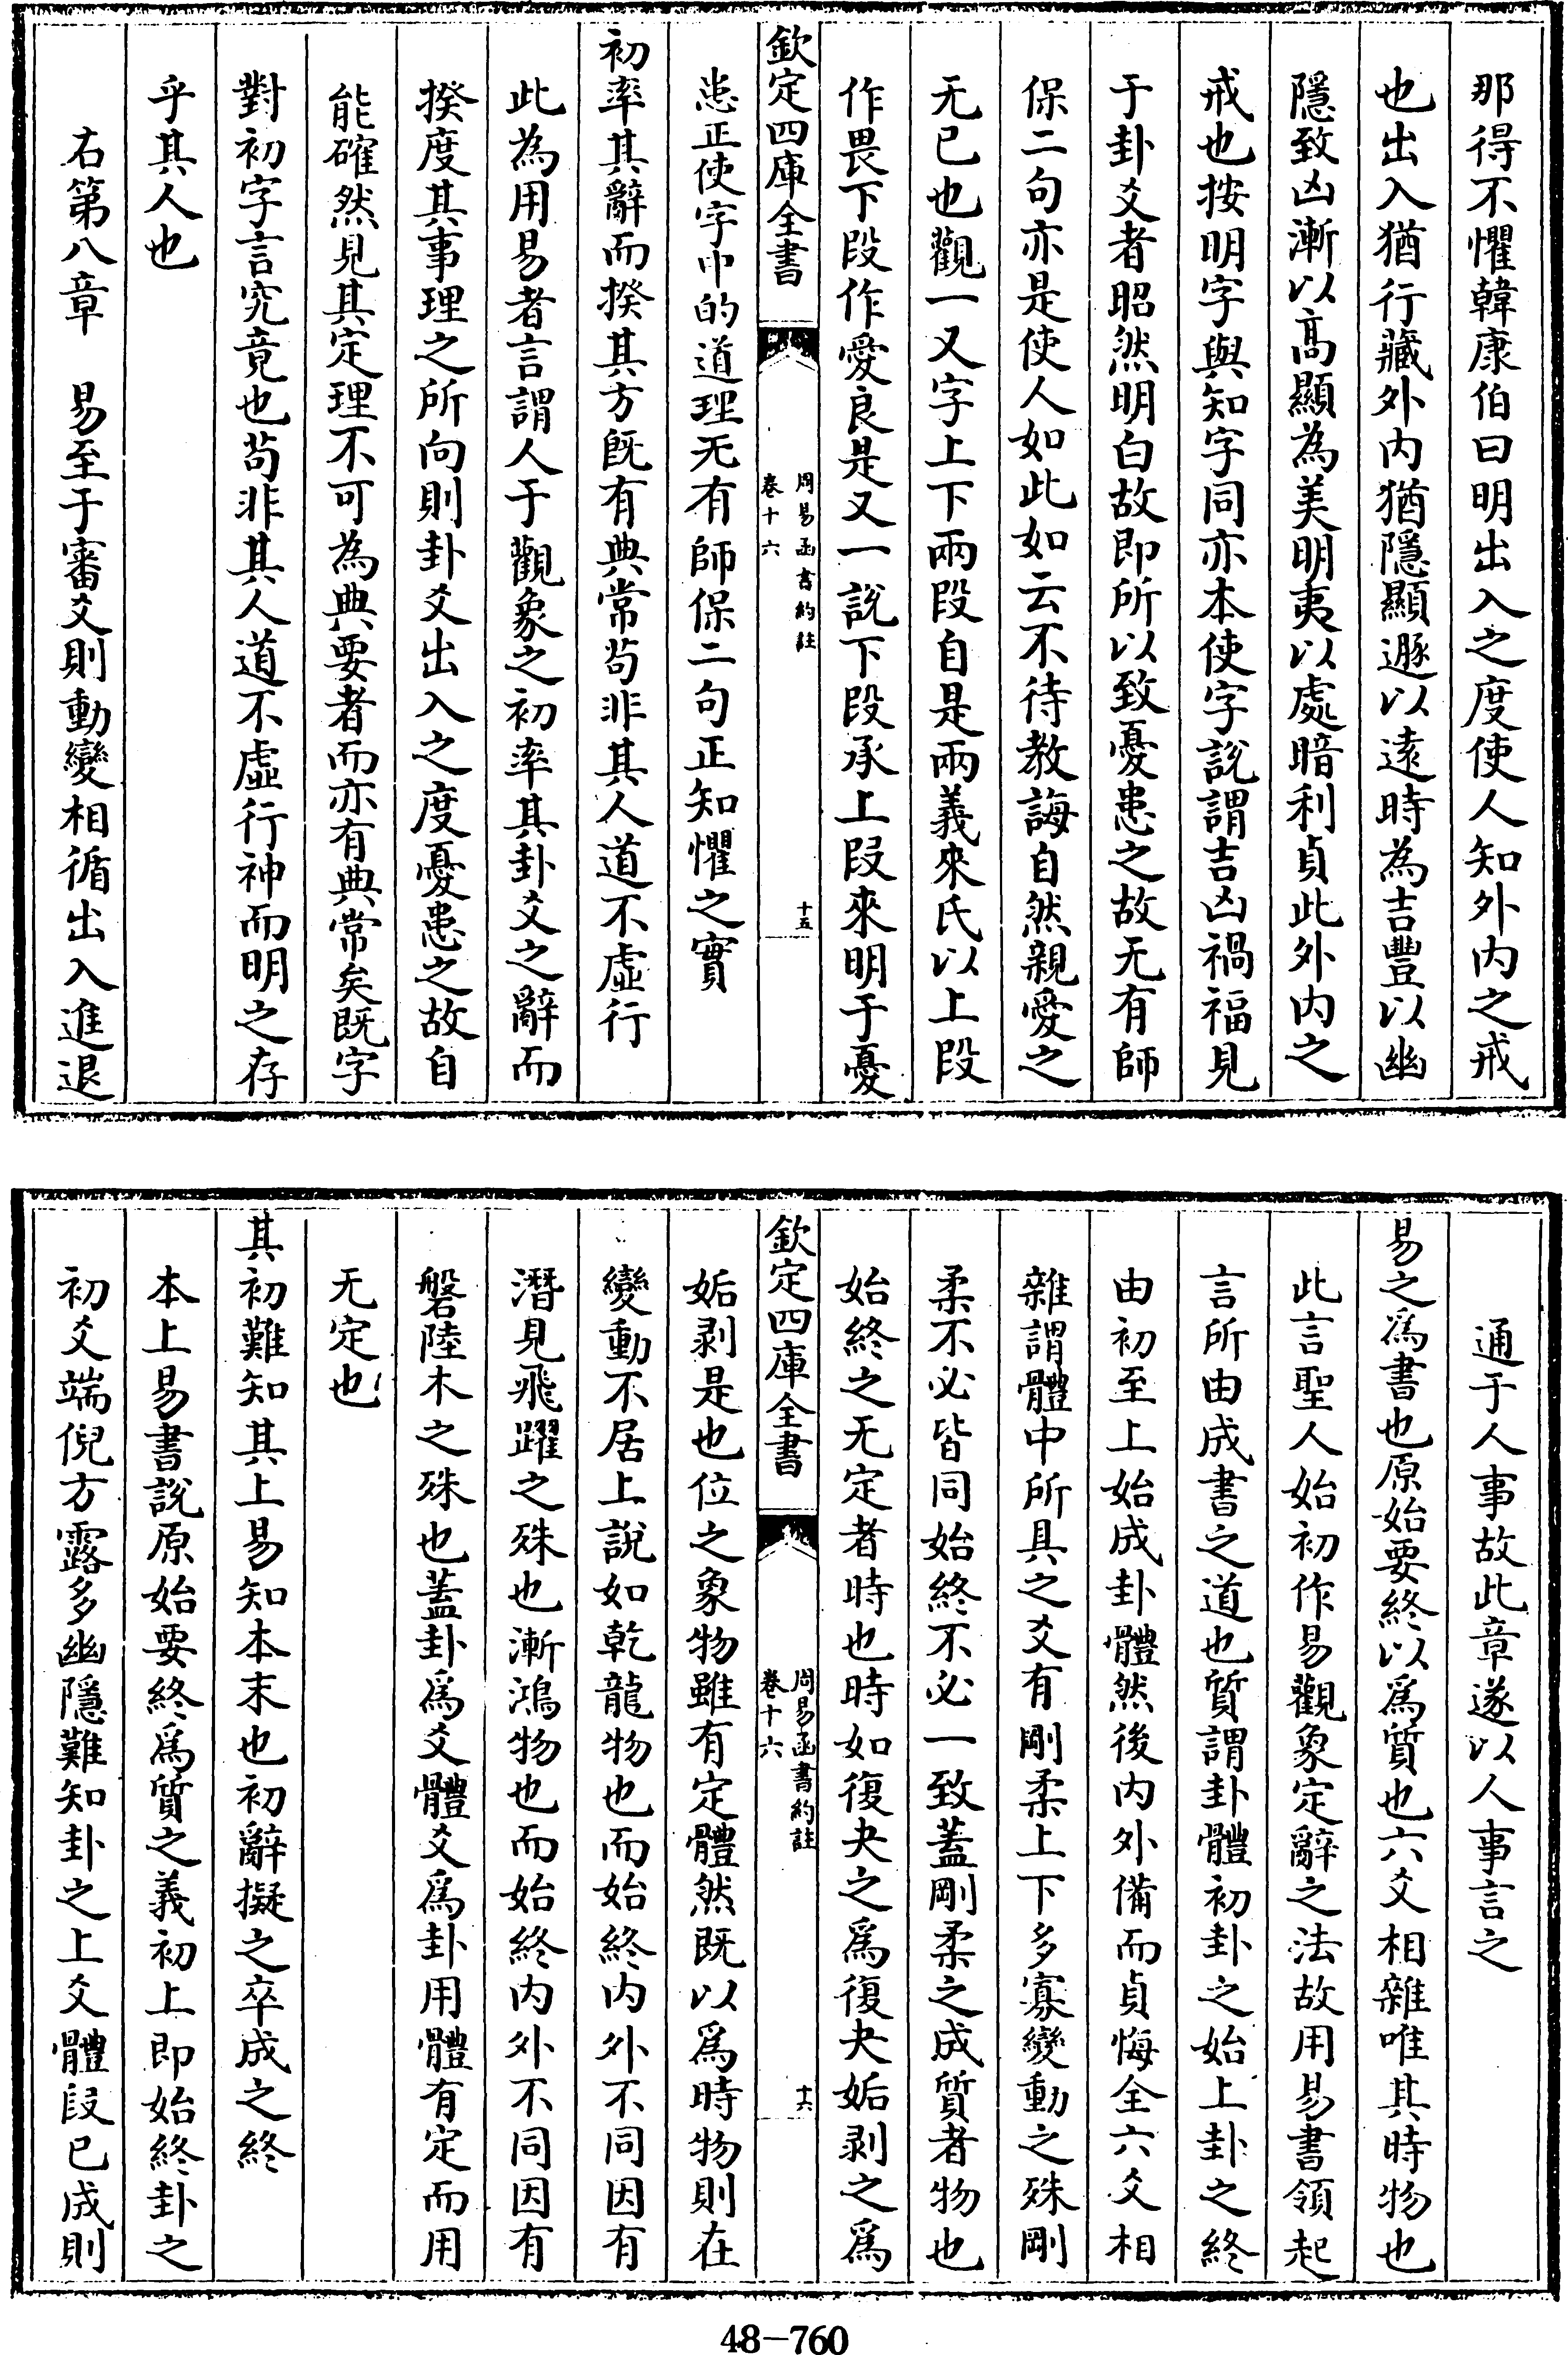 那得不懼韓康伯曰明出入之度使人知外内之戒
也出入猶行藏外内猶隱顯遯以遠時為吉豐以幽
隱致凶漸以高顯為美明夷以處暗利貞此外内之
戒也按明字與知字同亦本使字說謂吉凶禍福見
于卦爻者昭然明白故即所以致憂患之故无有師
保二句亦是使人如此如云不待教誨自然親愛之
无已也觀一又字上下兩段自是兩義來氏以上段
作畏下段作愛良是又一說下段承上段來明于憂
欽定四庫全書
周易函書約註
卷十六
十五
患正使字中的道理无有師保二句正知懼之實
初率其辭而揆其方既有典常茍非其人道不虛行
此為用易者言謂人于觀象之初率其卦爻之辭而
揆度其事理之所向則卦爻出入之度憂患之故自
能確然見其定理不可為典要者而亦有典常矣既字
對初字言究竟也茍非其人道不虛行神而明之存
乎其人也
右第八章　易至于審爻則動變相循出入進退
通于人事故此章遂以人事言之
易之爲書也原始要終以爲質也六爻相雜唯其時物也
此言聖人始初作易觀象定辭之法故用易書領起
言所由成書之道也質謂卦體初卦之始上卦之終
由初至上始成卦體然後内外備而貞悔全六爻相
雜謂體中所具之爻有剛柔上下多寡變動之殊剛
柔不必皆同始終不必一致蓋剛柔之成質者物也
始終之无定者時也時如復夬之爲復夬姤剥之爲
欽定四庫全書
周易函書約註
卷十六
十六
姤剥是也位之象物雖有定體然既以爲時物則在
變動不居上說如乾龍物也而始終内外不同因有
潛見飛躍之殊也漸鴻物也而始終内外不同因有
磐陸木之殊也蓋卦爲爻體爻爲卦用體有定而用
无定也
其初難知其上易知本末也初辭擬之卒成之終
本上易書說原始要終爲質之義初上即始終卦之
初爻端倪方露多幽隱難知卦之上爻體段已成則
48-760